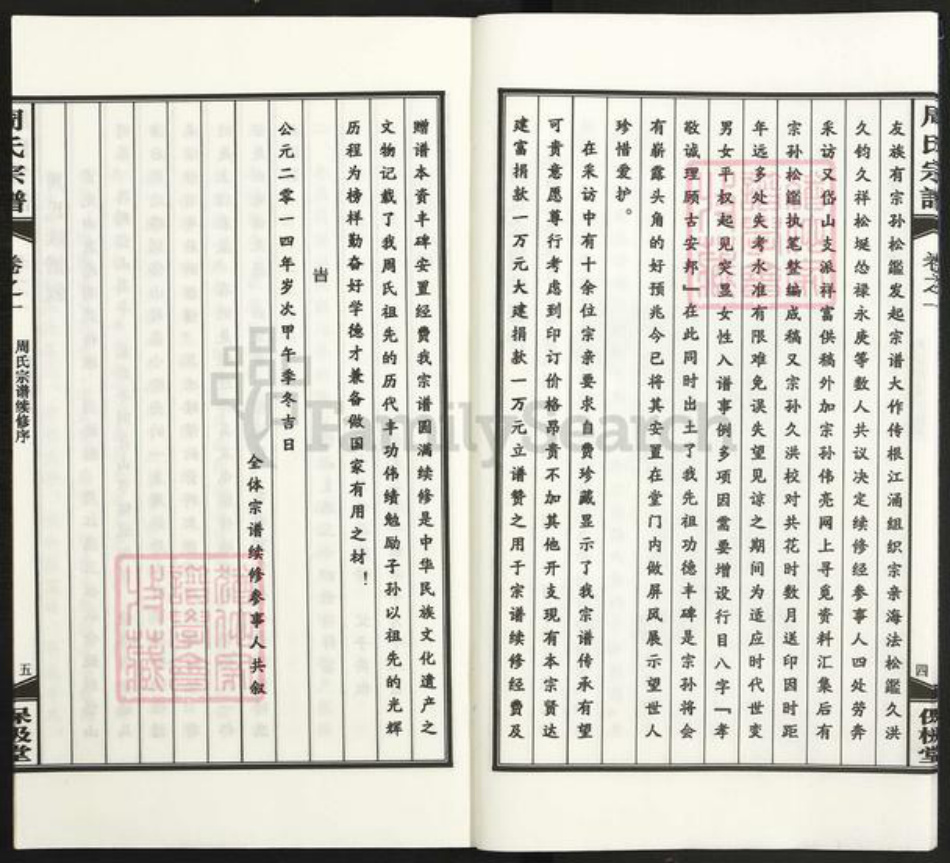 周氏宗譜
卷之一
四
保極堂
友族有宗孙松鑑发起宗谱大作传根江涌组织宗亲海法松鑑久洪
久钧久祥松埏怂禄永庚等数人共议决定续修经参事人四处劳奔
采访又岱山支派祥富供稿外加宗孙伟亮网上寻觅资料汇集后有
宗孙松鑑执笔整编成稿又宗孙久洪校对共花时数月送印因时距
年远多处失考水准有限难免误失望见谅之期间为适应时代世变
男女平权起见突显女性入谱事例多项因需要增设行目八字「孝
敬诚理顾古安邦」在此同时出土了我先祖功德丰碑是宗孙将会
有崭露头角的好预兆今已将其安置在堂门内做屏风展示望世人
珍惜爱护。
在采访中有十余位宗亲要求自费珍藏显示了我宗谱传承有望
可贵意愿尊行考虑到印订价格昂贵不加其他开支现有本宗贤达
建富捐款一万元大建捐款一万元立谱赞之用于宗谱续修经费及
赠谱本资丰碑安置经费我宗谱圆满续修是中华民族文化遗产之
文物记载了我周氏祖先的历代丰功伟绩勉励子孙以祖先的光辉
历程为榜样勤奋好学德才兼备做国家有用之材！
旹
公元二零一四年岁次甲午季冬吉日
全体宗谱续修参事人共叙
周氏宗譜
卷之一
周氏宗谱续修序
五
保极堂
FamilySearch